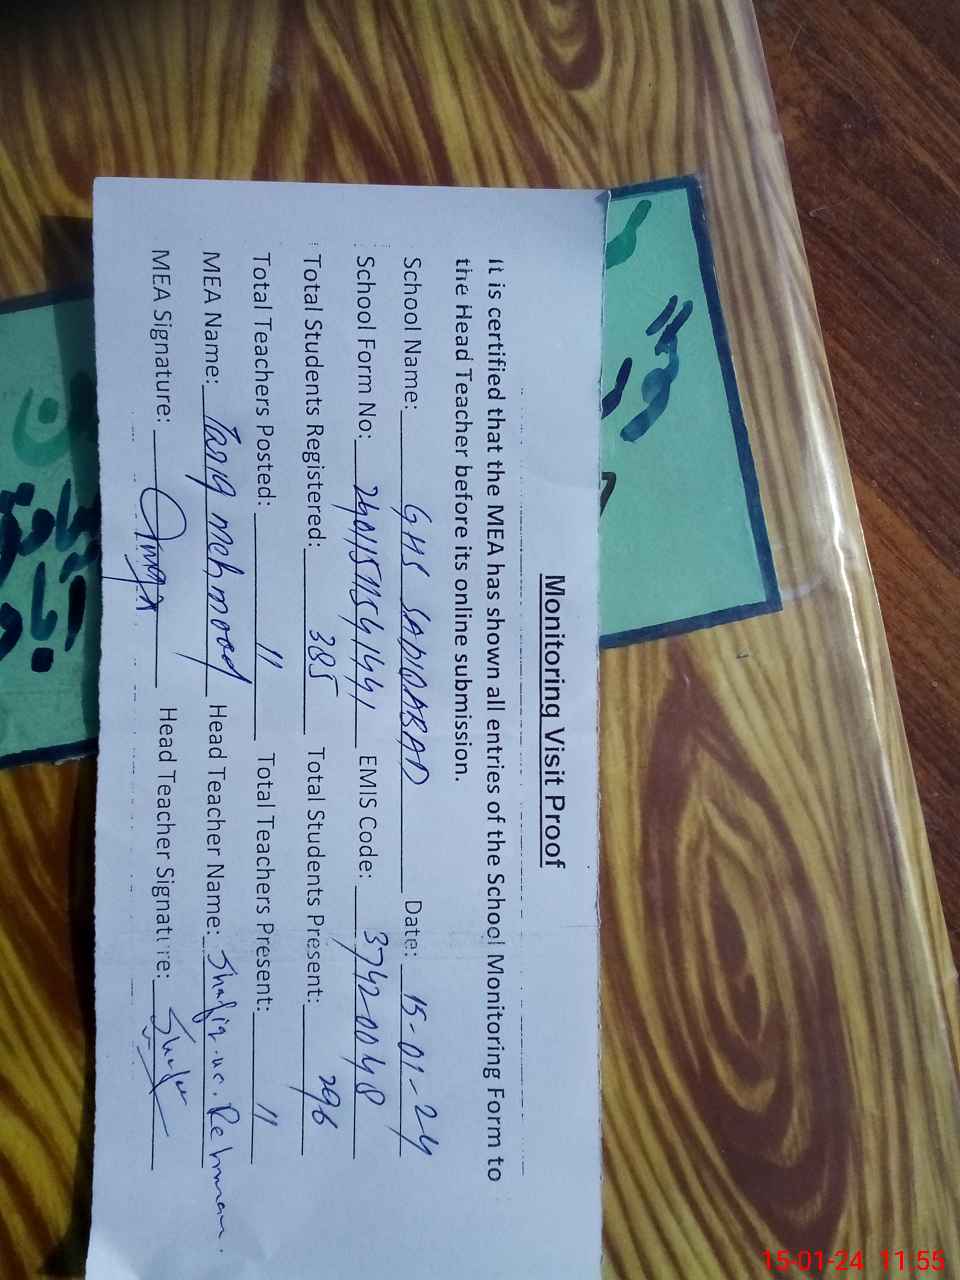 Monitoring Visit Proof
It is certified that the MEA has shown all entries of the School Monitoring Form to
the Head Teacher before its online submission.
School Name: GHS SADIQABAD Date: 15-01-24
School Form No: EMIS Code: 37420048
Total Students Registered: 385 Total Students Present: 296
Total Teachers Posted: 11 Total Teachers Present: 11
MEA Name: Tariq mehmood Head Teacher Name: Shafiq-ur-Rehman.
MEA Signature: Head Teacher Signature:
15-01-24 11:55